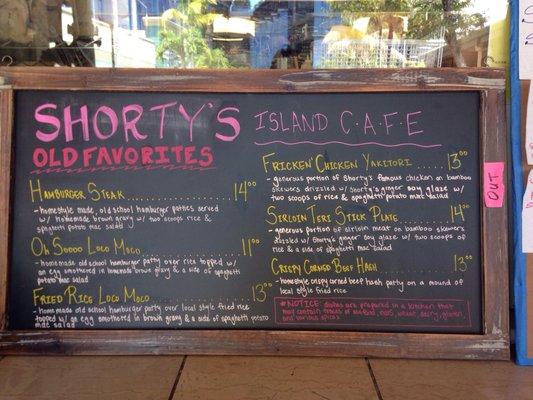 SHORTY'S ISLAND C·A·F·E
OLD FAVORITES
HAMBURGER STEAK 14⁰⁰
- homestyle made, old school hamburger patties served
w/ homemade brown gravy w/ two scoops rice &
spaghetti potato mac salad
OH SOOOO LOCO MOCO 11⁰⁰
- homemade old school hamburger patty over rice topped w/
an egg smothered in homemade brown gravy & a side of spaghetti
potato mac salad
FRIED RICE LOCO MOCO 13⁰⁰
- homemade old school hamburger patty over local style fried rice
topped w/ an egg smothered in brown gravy & a side of spaghetti potato
mac salad
FRICKEN' CHICKEN YAKITORI 13⁰⁰
- generous portion of Shorty's famous chicken on bamboo
skewers drizzled w/ Shorty's ginger soy glaze w/
two scoops of rice & spaghetti potato mac salad
SIRLOIN TERI STICK PLATE 14⁰⁰
- generous portion of sirloin meat on bamboo skewers
drizzled w/ Shorty's ginger soy glaze w/ two scoops of rice
& a side of spaghetti mac salad
CRISPY CORNED BEEF HASH 13⁰⁰
- homestyle crispy corned beef hash patty on a mound of
local style fried rice
*NOTICE: dishes are prepared in a kitchen that
may contain traces of seafood, nuts, wheat, dairy, gluten
and various spices
OUT